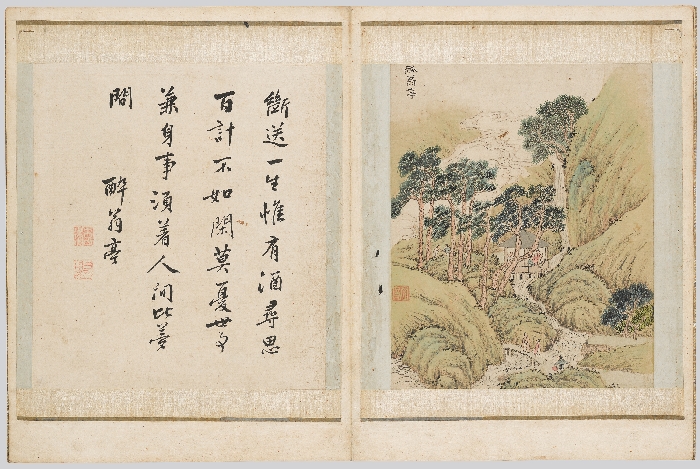 醉翁亭
斷送一生惟有酒尋思
百計不如閑莫憂世事
兼身事須着人間比夢
間
醉翁亭